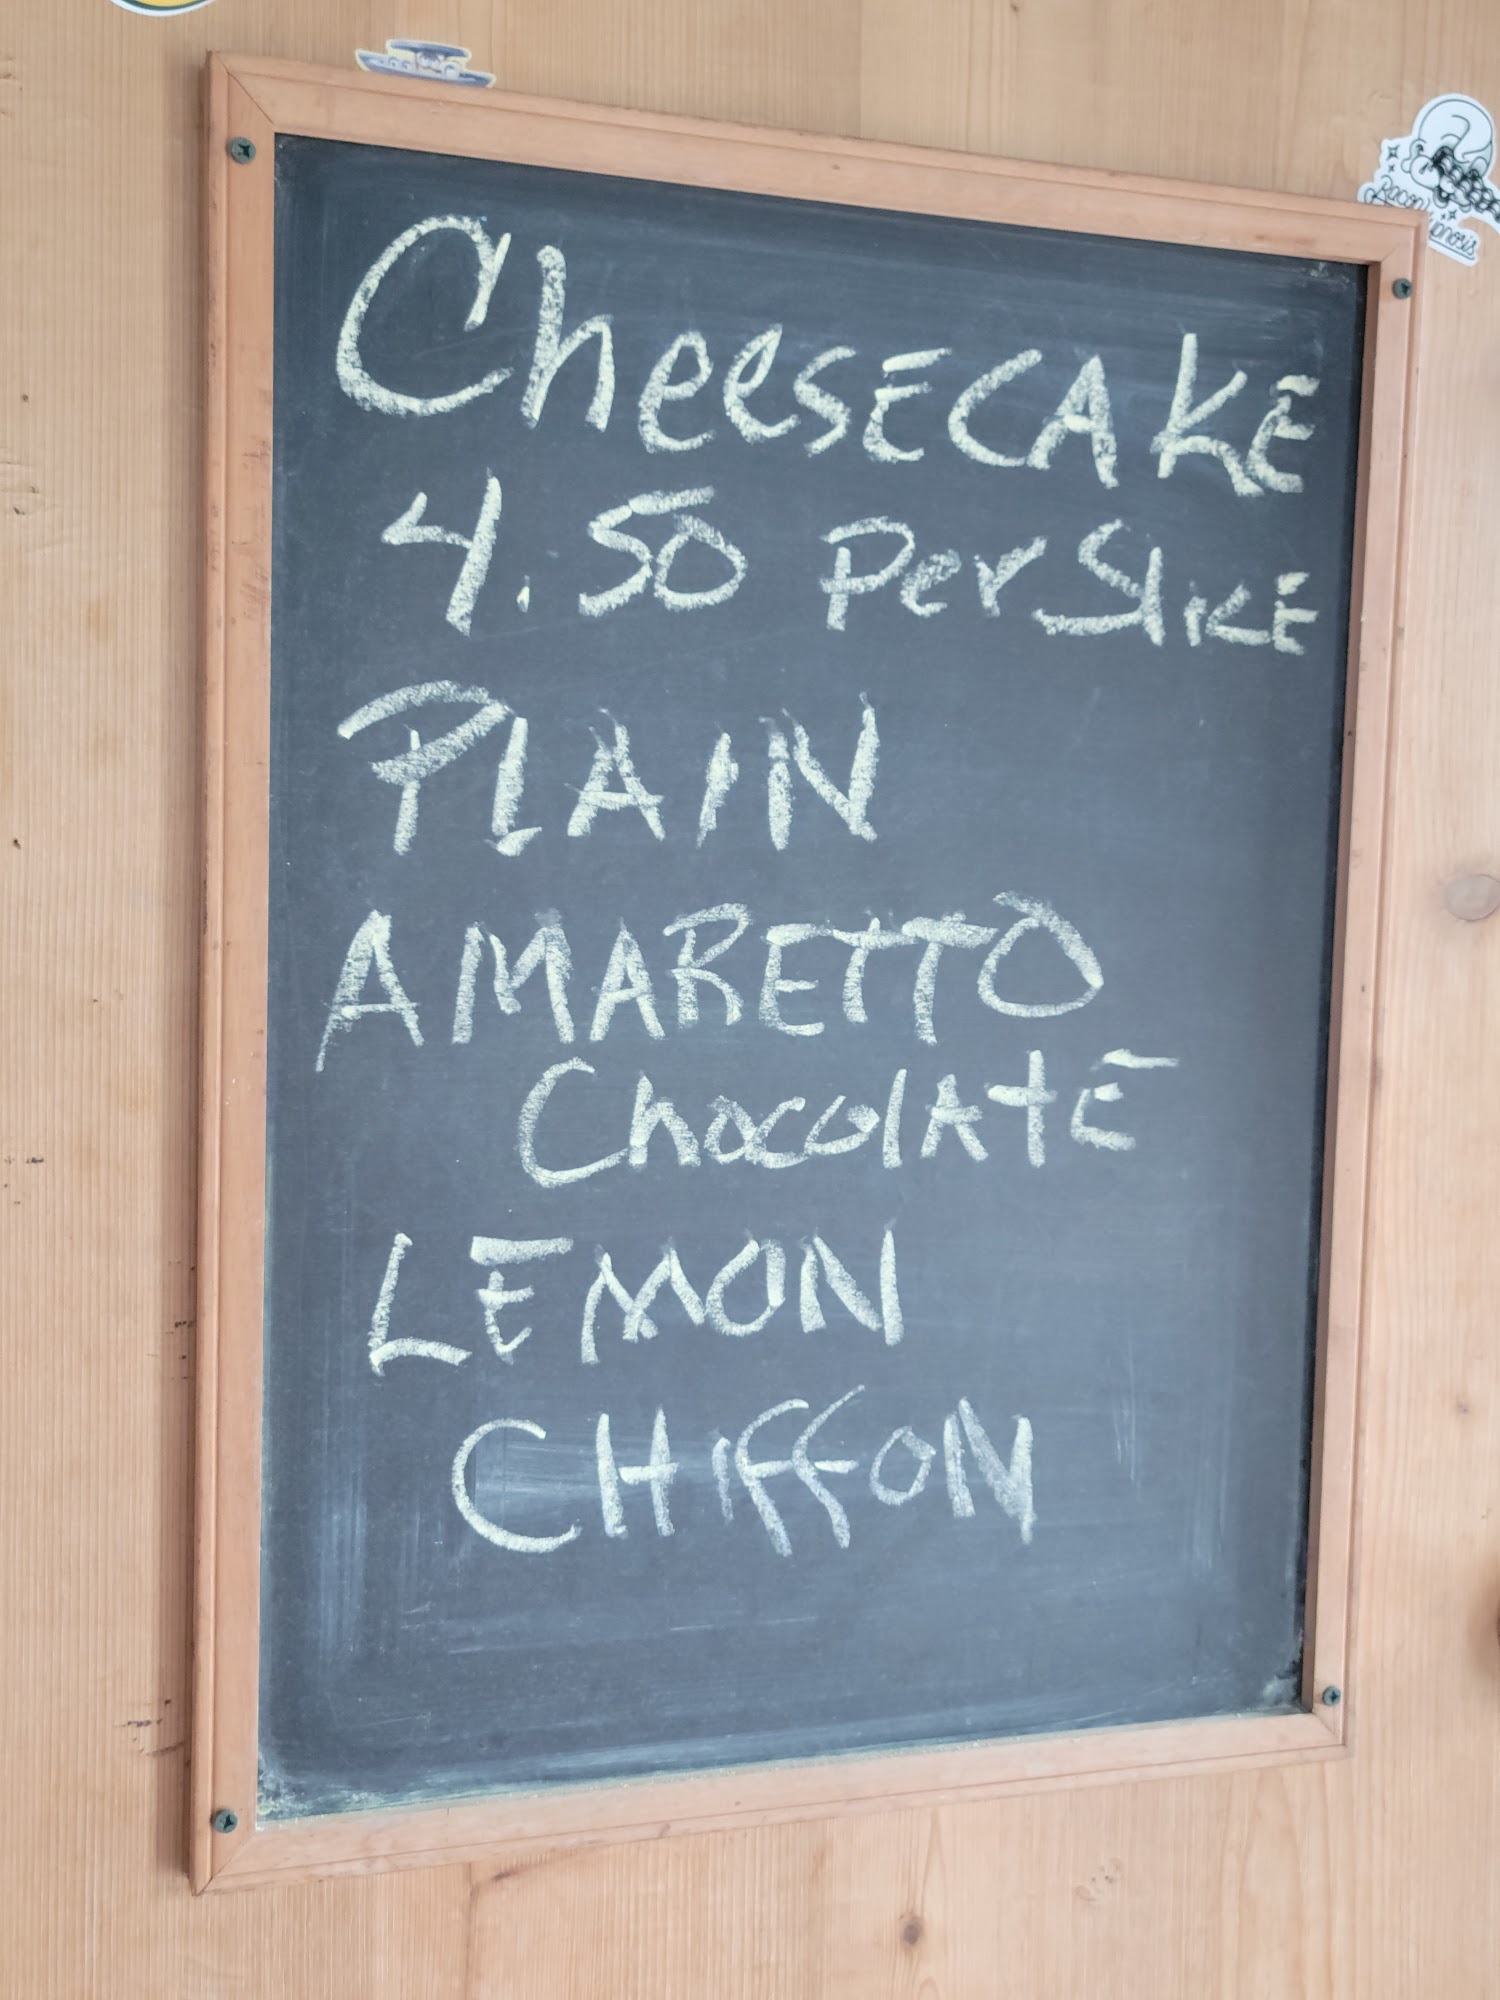 CheesECAKE
4.50 Per SlicE
PLAIN
AMARETTO
ChocolAtE
LEMON
CHIFFON
Bacon